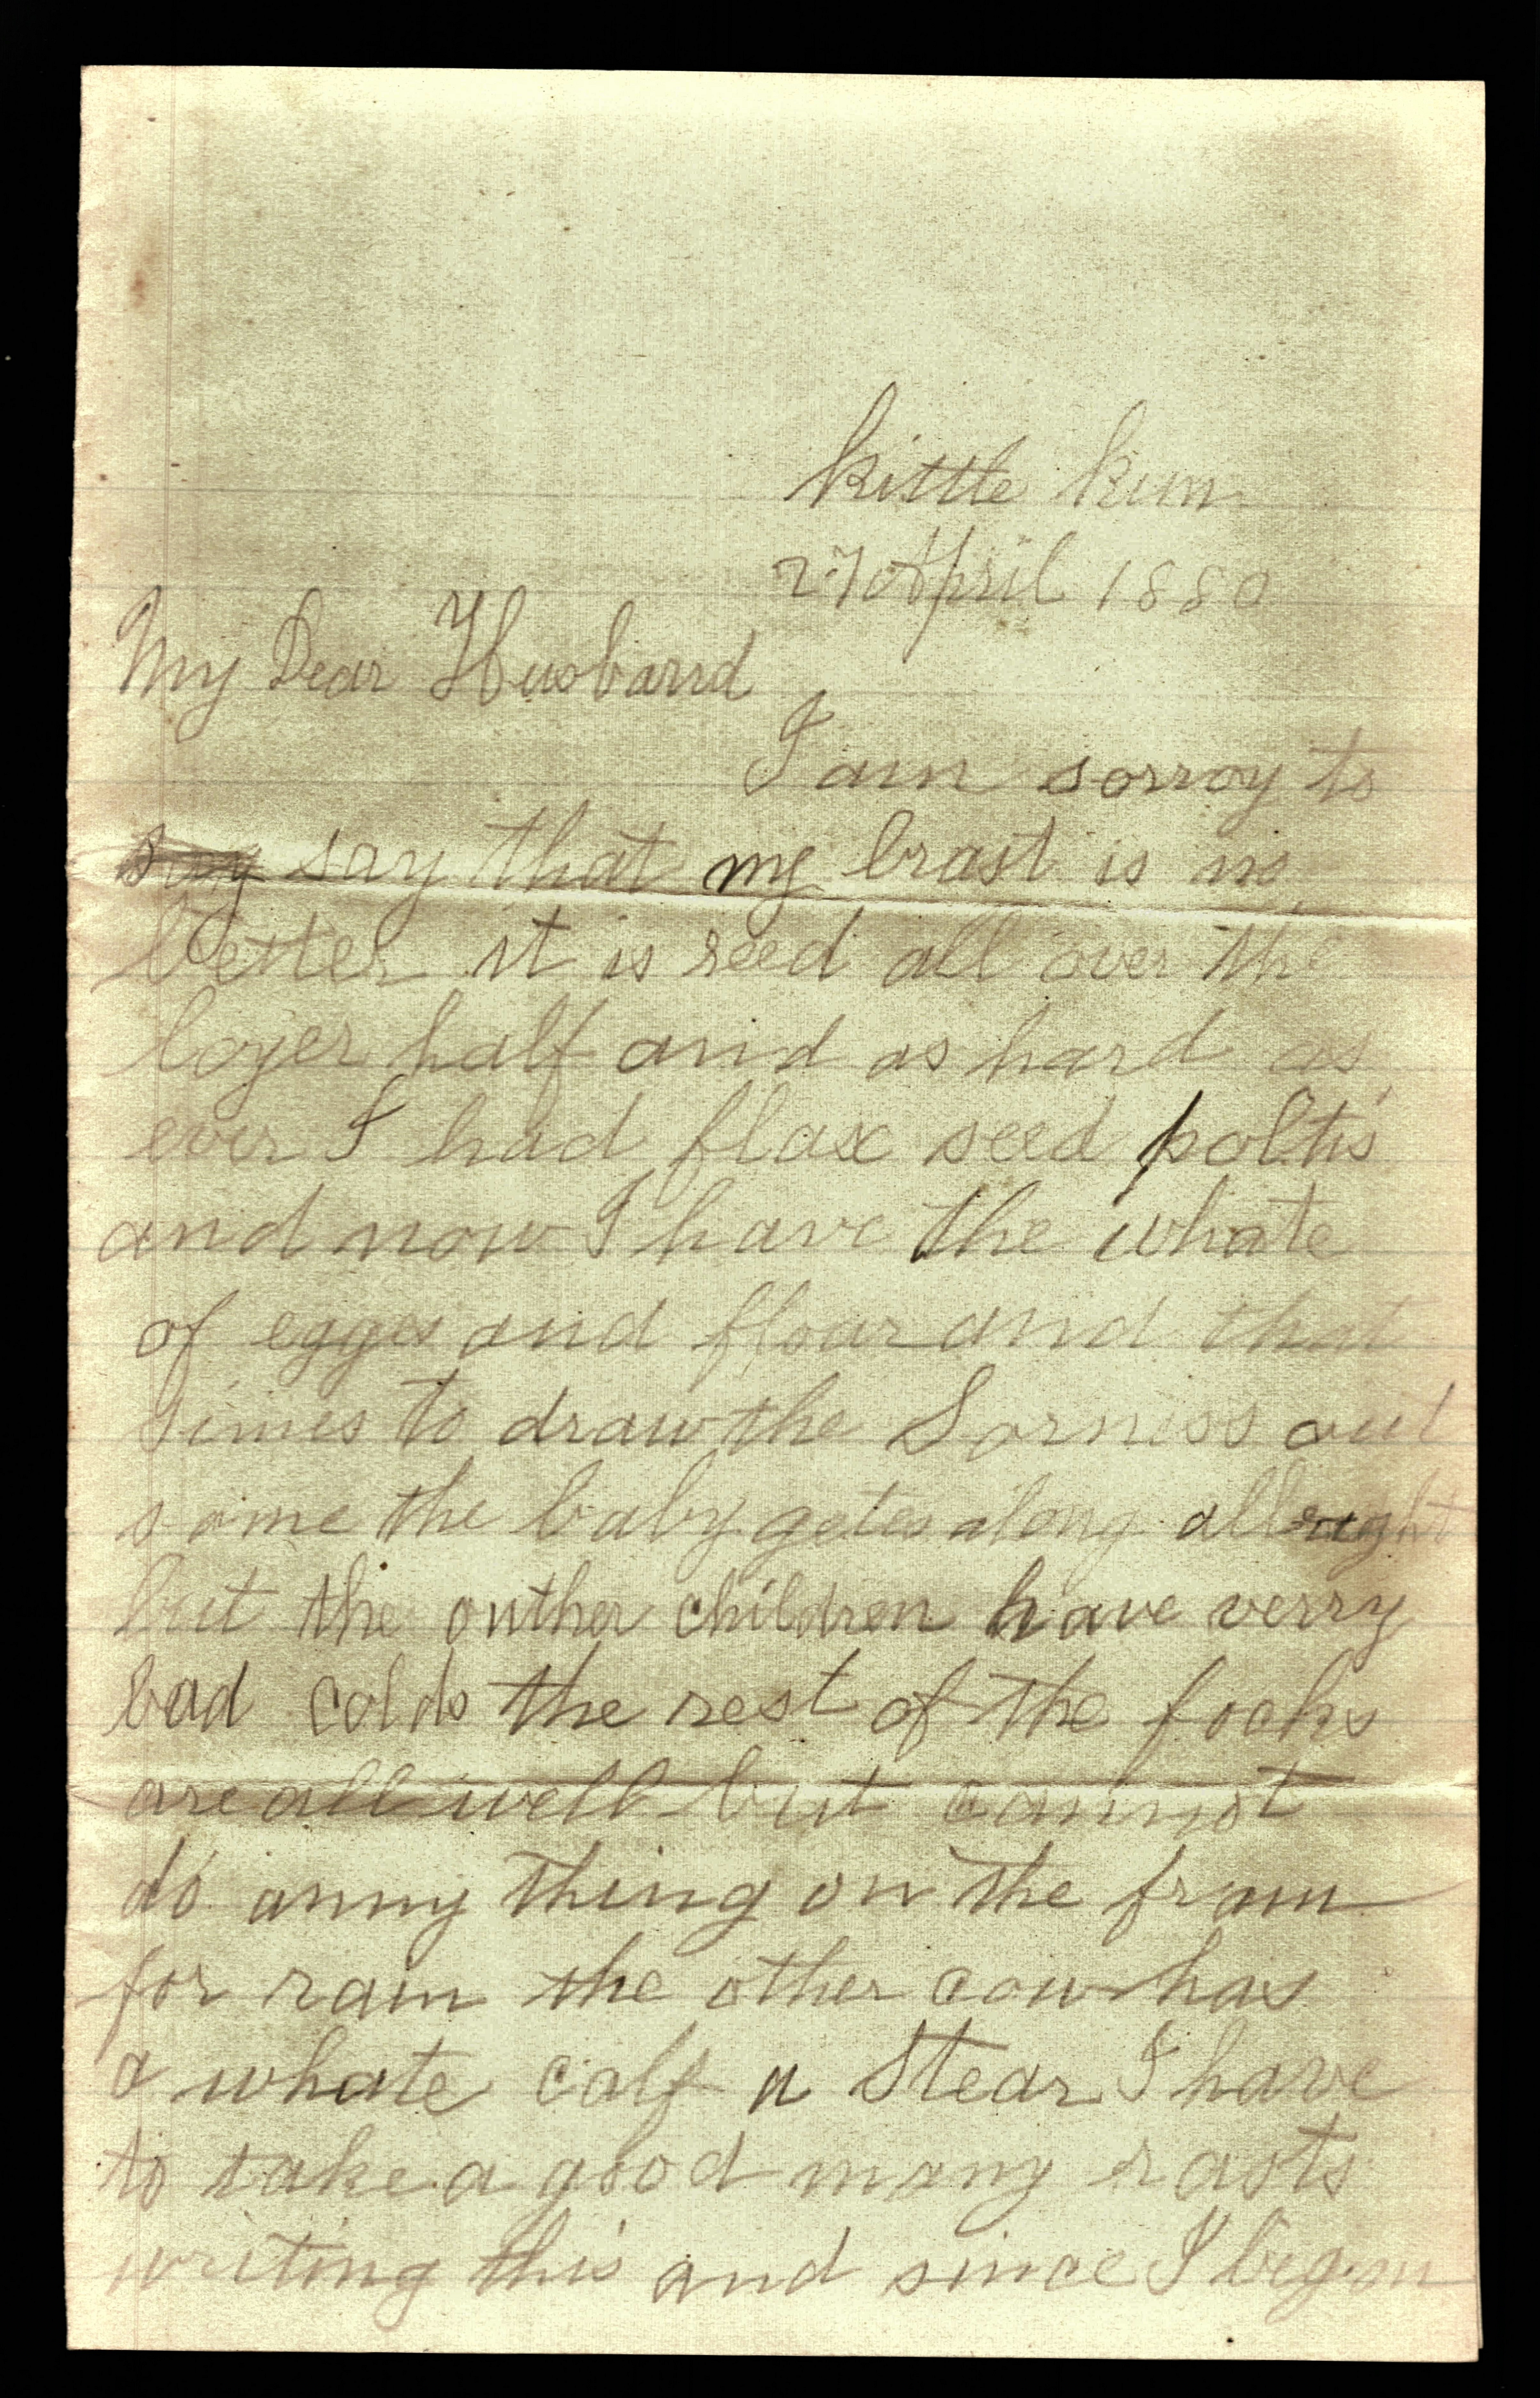 kittle Run
27 April 1880
My Dear Husband
I am sorroy to
say say that my brast is no
better it is reed all over the
loyer half and as hard as
ever I had flax seed poltis
and now I have the whate
of eggs and flour and that
simes to draw the Sorniss out
some the baby getes along all right
but the outher children have verry
bad colds the rest of the focks
are all well but cannot
do anny thing on the fram
for rain the other cow has
a whate calf a Stear I have
to take a good many rasts
writing this and since I began